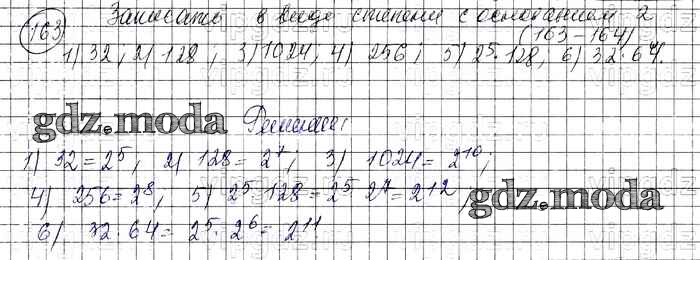 163 Записать в виде степени с основанием 2
(163-164)
1) 32, 2) 128, 3) 1024, 4) 256; 5) 2⁵·128, 6) 32·64.
gdz.moda Решение:
1) 32=2⁵; 2) 128=2⁷; 3) 1024=2¹⁰;
4) 256=2⁸, 5) 2⁵ 128=2⁵ 2⁷=2¹²,
gdz.moda
6) 32·64=2⁵·2⁶=2¹¹